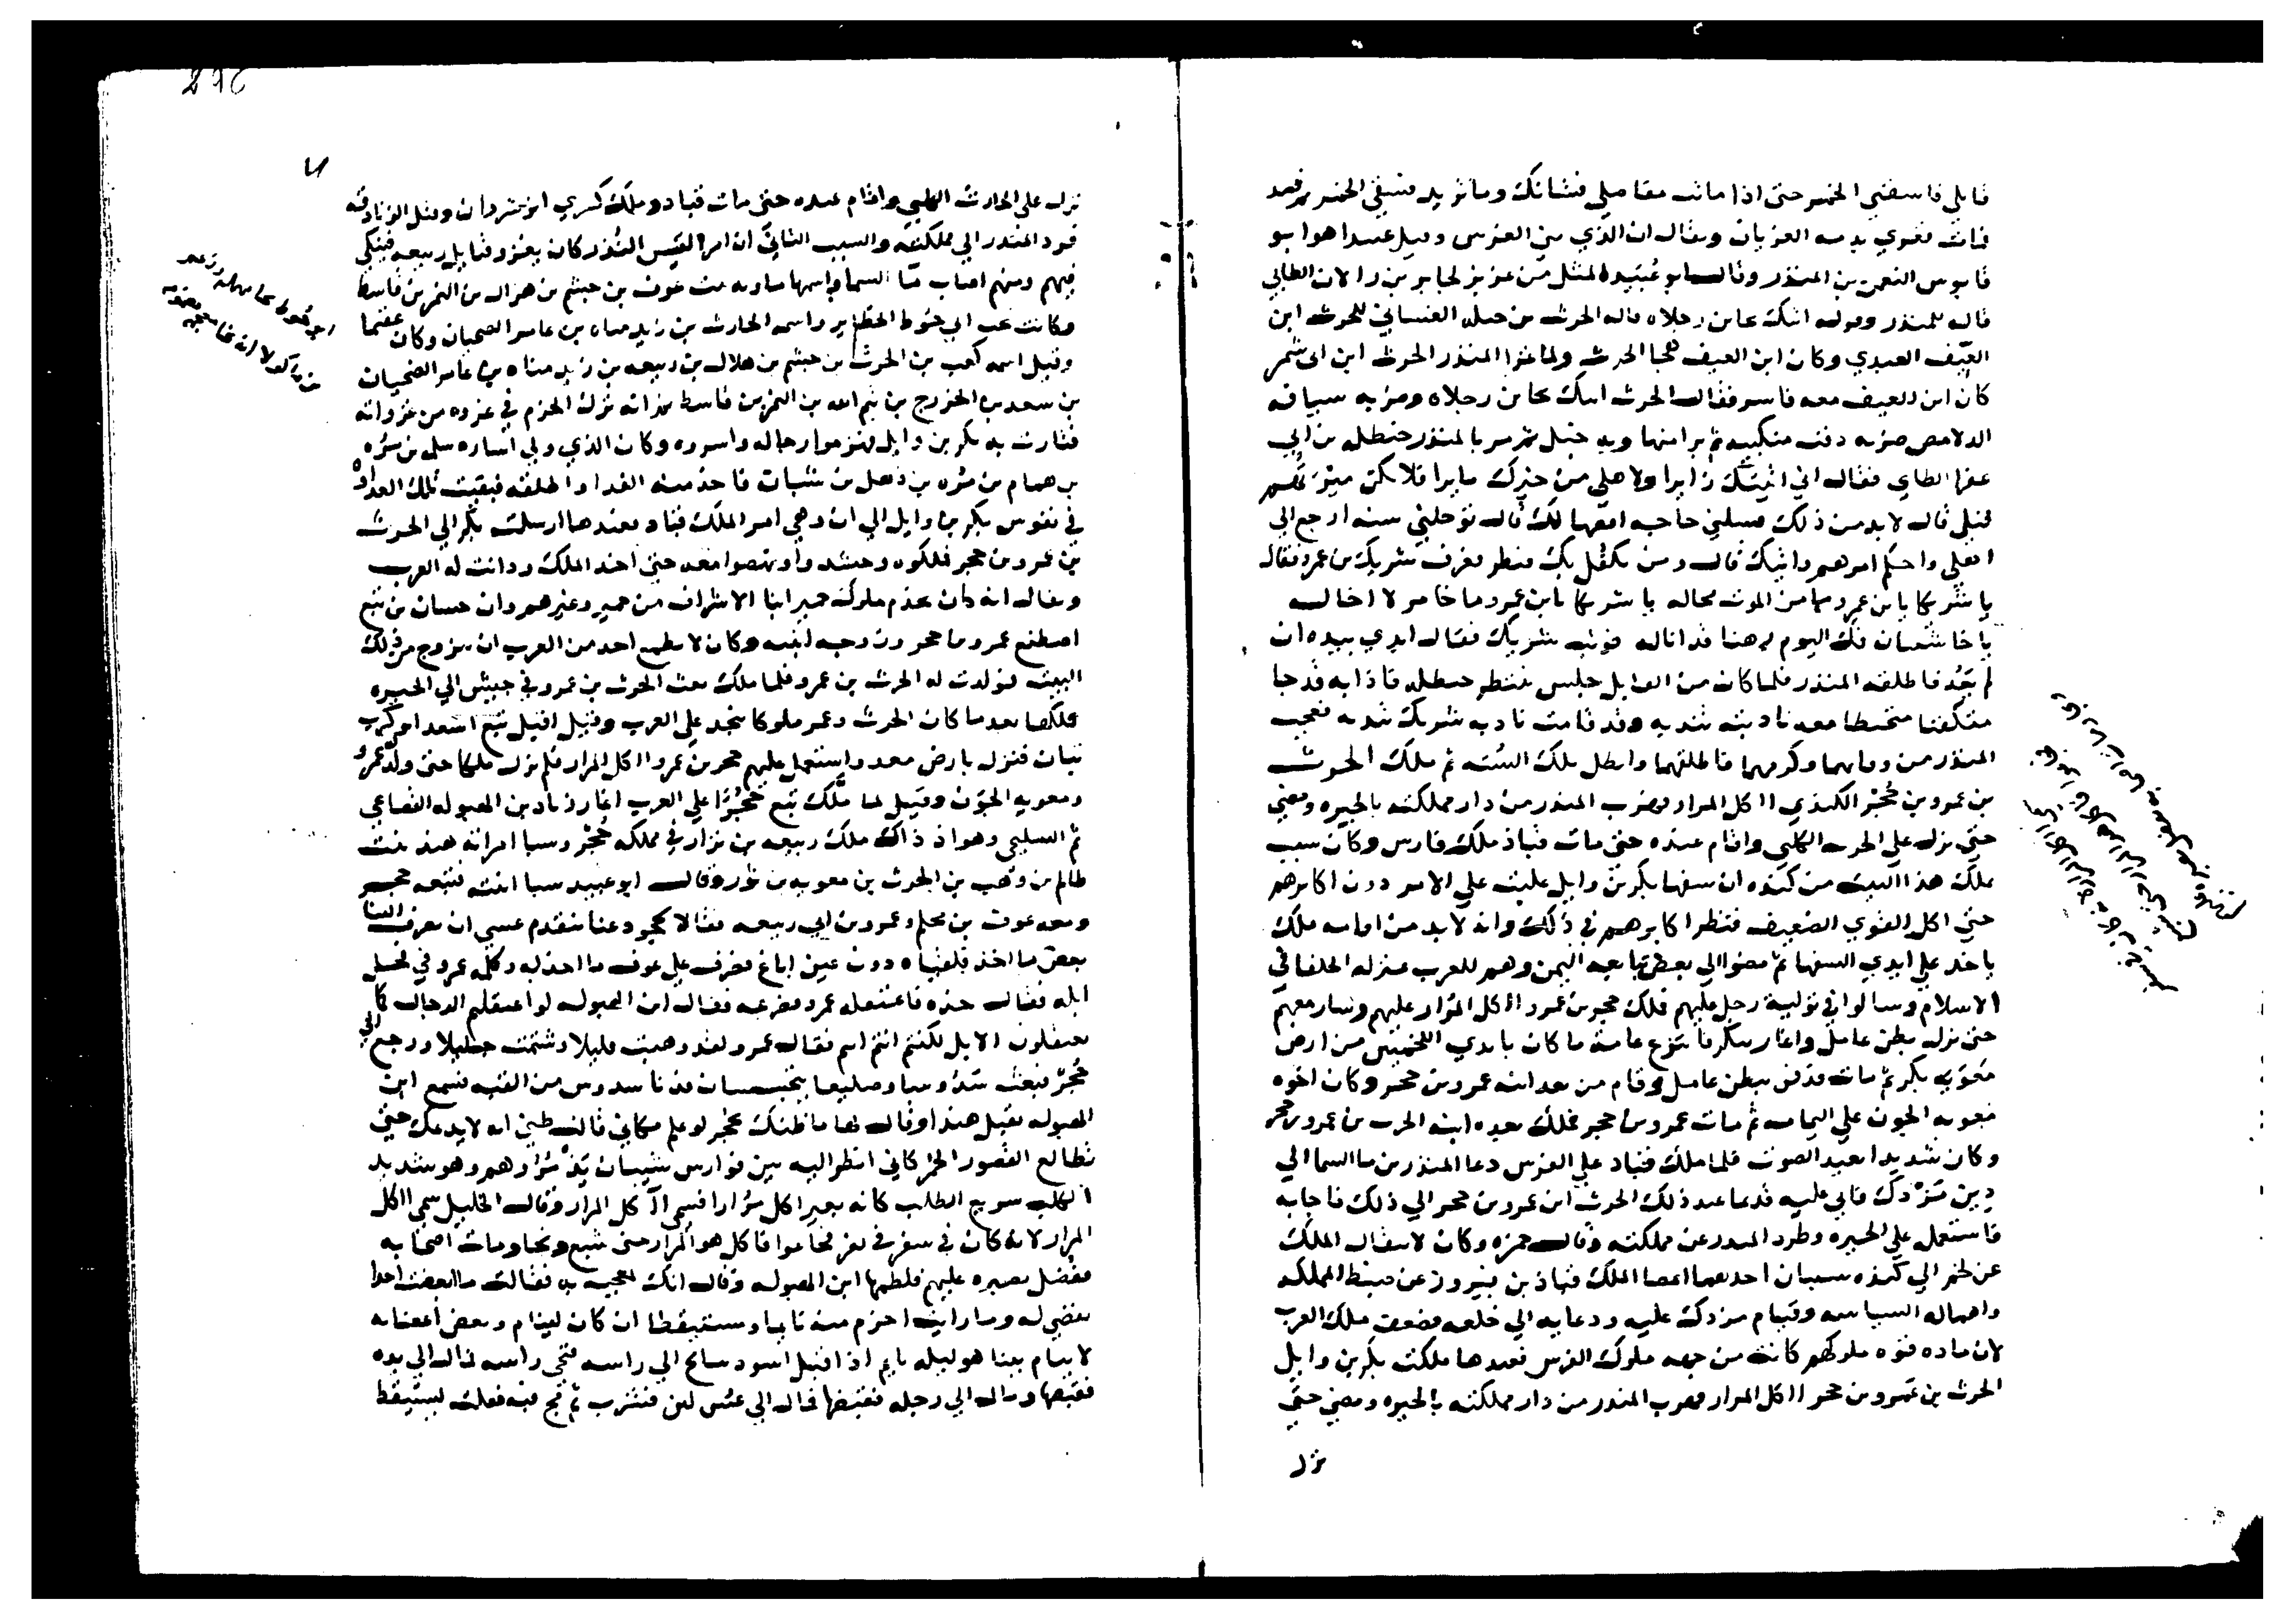 قابلي فاسقني الخمر حتى اذا ماتت مفاصلي فشانك وما تريد فسقي الخمر ثم فصد
قابوس النعمن بن المنذر وقال ابو عبيده المثل من عزيز لجابر بن رالان الطاي
قاله للمنذر وقوله اتتك بحاين رجلاه قاله الحرث بن جبله الغساني للحرث ابن
العيف العبدي وكان ابن العيف هجا الحرث ولما غزا المنذر الحرث ابن ابي شمر
كان ابن العيف معه فاسر فقال الحرث اتتك بحاين رجلاه وضربه سيافه
الدلامص ضربه دقت منكبيه ثم برا منها وبه خبل ثم مر بالمنذر حنظله بن ابي
عفرا الطاي فقال اني اتيتك زايرا ولاهلي من خيرك مايرا فلا تكن ميرتهم
قتلي قال لا بد من ذلك فسلني حاجه اقضها لك قال توجلني سنه ارجع الي
اهلي واحكم امرهم واتيك قال ومن يكفل بك فنظر فعرف شريك بن عمرو فقال
يا شريكا يابن عمرو ما من الموت محاله يا شريكا يابن عمرو
يا اخا شيبان فك اليوم رهنا قد اناله فوثب شريك فقال ايدي بيده ان
لم يعد فاطلقه المنذر فلما كان من القابل جلس ينتظر حنظله فاذا به قد جا
متكفنا متحنطا معه نادبته تندبه وقد قامت نادبه شريك تندبه فعجب
المنذر من وفايهما وكرمهما فاطلقهما وابطل تلك السنه ثم ملك الحرث
بن عمرو بن حجر الكندي اكل المرار فهرب المنذر من دار مملكته بالحيره ومضي
حتى نزل علي الحرث الكلبي واقام عنده حتى مات قباذ ملك فارس وكان سبب
ملك هذا البيت من كنده ان سفها بكر بن وايل غلبت علي الامر دون اكابرهم
حتى اكل القوي الضعيف فنظرا كابرهم في ذلك وانه لا بد من اقامه ملك
ياخذ علي ايدي السفها ثم مضوا الي بعض تبابعه اليمن وهم للعرب بمنزله الخلفا في
الاسلام وسالوا في تولية رجل عليهم فملك حجر بن عمرو اكل المرار عليهم وسار معهم
حتى نزل بطن عاقل واغار ببكر فانتزع عامة ما كان بايدي اللخميين من ارض
بكر ثم مات فدفن ببطن عاقل وقام من بعده ابنه عمرو بن حجر وكان اخوه
معويه الجون علي اليمامه ثم مات عمرو بن حجر فملك بعده ابنه الحرث بن عمرو بن حجر
وكان شديدا بعيد الصوت فلما ملك قباد علي الفرس دعا المنذر بن ما السما الي
دين مزدك فابي عليه فدعا عند ذلك الحرث ابن عمرو بن حجر الي ذلك فاجابه
فاستعمل علي الحيره وطرد المنذر عن مملكته وقال حمزه وكان لانتقال الملك
عن لخم الي كنده سببان احدهما اعضا الملك قباذ بن فيروز عن ضبط المملكه
واهماله السياسه وقيام مزدك عليه ودعايه الي خلعه فضعف ملك العرب
لان ماده قوه ملوكهم كانت من جهه ملوك الفرس فعندها ملكت بكر بن وايل
الحرث بن عمرو بن حجر اكل المرار فهرب المنذر من دار مملكته بالحيره ومضي حتى
نزل
نزل علي الحارث الكلبي واقام عنده حتى مات قباد وملك كسري انوشروان وقتل الزنادقه
فرد المنذر الي مملكته والسبب الثاني ان امرا القيس كان يغزو قبايل ربيعه فينكي
فيهم ومنهم اصاب ما السما واسمها ماويه بنت عوف بن جشم بن هلال بن النمر بن قاسط
وكانت تحت ابي حوط الحظاير واسمه الحارث بن زيد مناه بن عامر الضحيان وكان
وقيل اسمه كعب بن الحرث بن جشم بن هلال بن ربيعه بن زيد مناه بن عامر الضحيان
بن سعد بن الخزرج بن تيم الله بن النمر بن قاسط ثم انه ترك الحزم في غزوه من غزواته
فثارت به بكر بن وايل فهزموا رجاله واسروه وكان الذي ولي اساره سلمه بن مره
بن همام بن مره بن ذهل بن شيبان فاخذ منه الفدا واطلقه فبقيت تلك العداوه
في نفوس بكر بن وايل الي ان وهي امر الملك قباد فعندها ارسلت بكر الي الحرث
بن عمرو بن حجر فملكوه ونهضوا معه حتى اخذ الملك ودانت له العرب
ويقال انه كان يخدم ملوك حمير ابنا الاشراف من حمير وغيرهم وان حسان بن تبع
اصطنع عمرو بن حجر وزوجه ابنته وكان لا يطمع احد من العرب ان يتزوج من ذلك
البيت فولدت له الحرث بن عمرو فلما ملك بعث الحرث بن عمرو في جيش الي الحيره
فملكها بعد ما كان الحرث وعمر ملوكا بنجد علي العرب وقيل اقبل تبع اسعد ابو كرب
فنزل بارض معد واستعمل عليهم حجر بن عمرو اكل المرار فلم يزل ملكا حتى ولد عمرو
ومعويه الجون وقيل لما ملك تبع حجرا علي العرب اغار زياد بن الهبوله القضاعي
ثم السليحي وهو اذ ذاك ملك ربيعه بن نزار في مملكه حجر وسبا امراته هند بنت
ظالم بن وهب بن الحرث بن معويه بن ثور وقال ابو عبيد سبا ابنته فتبعه حجر
ومعه عوف بن محلم وعمرو بن ابي ربيعه فقالا لحجر دعنا نتقدم عسي ان نصرف الينا
بعض ما اخذ فلقياه دون عين اباغ فصرف علي عوف ما اخذ له وكلمه عمرو في فحل
ابله فقال خذه فاعتقله عمرو فصرعه فقال ابن الهبوله لو اعتقلتم الرجال كما
تعتقلون الابل لكنتم انتم انتم فقال عمرو لقد وهبت قليلا وشتمت جليلا ورجع الي
حجر فبعث سدوسا وصليعا يتجسسان فدنا سدوس من القبه فسمع ابن
الهبوله يقبل هندا وقال لها ما ظنك بحجر لو علم مكاني قالت ظني انه لا يدعك حتى
تطالع القصور الحمر كاني انظر اليه بين فوارس شيبان يذمرهم وهو شديد
الكلب سريع الطلب كانه بعير اكل مرارا فسمي اكل المرار وقال الخليل سمي اكل
المرار لانه كان في سفر في نفر فجاعوا فاكل هو المرار حتى شبع ونجا ومات اصحابه
ففضل بصبره عليهم فلطمها ابن الهبوله وقال انك لمعجبه به فقالت ما ابغضت احدا
بغضي له وما رايت احزم منه نايما ومستيقظا ان كان لينام وبعض اعضايه
لا ينام بينا هو ليله نايم اذ اقبل اسود سالخ الي راسه فنحي راسه فمال الي يده
فقبضها ومال الي رجله فقبضها فمال الي عس لبن فشرب ثم مج فيه فقلت ليستيقظ